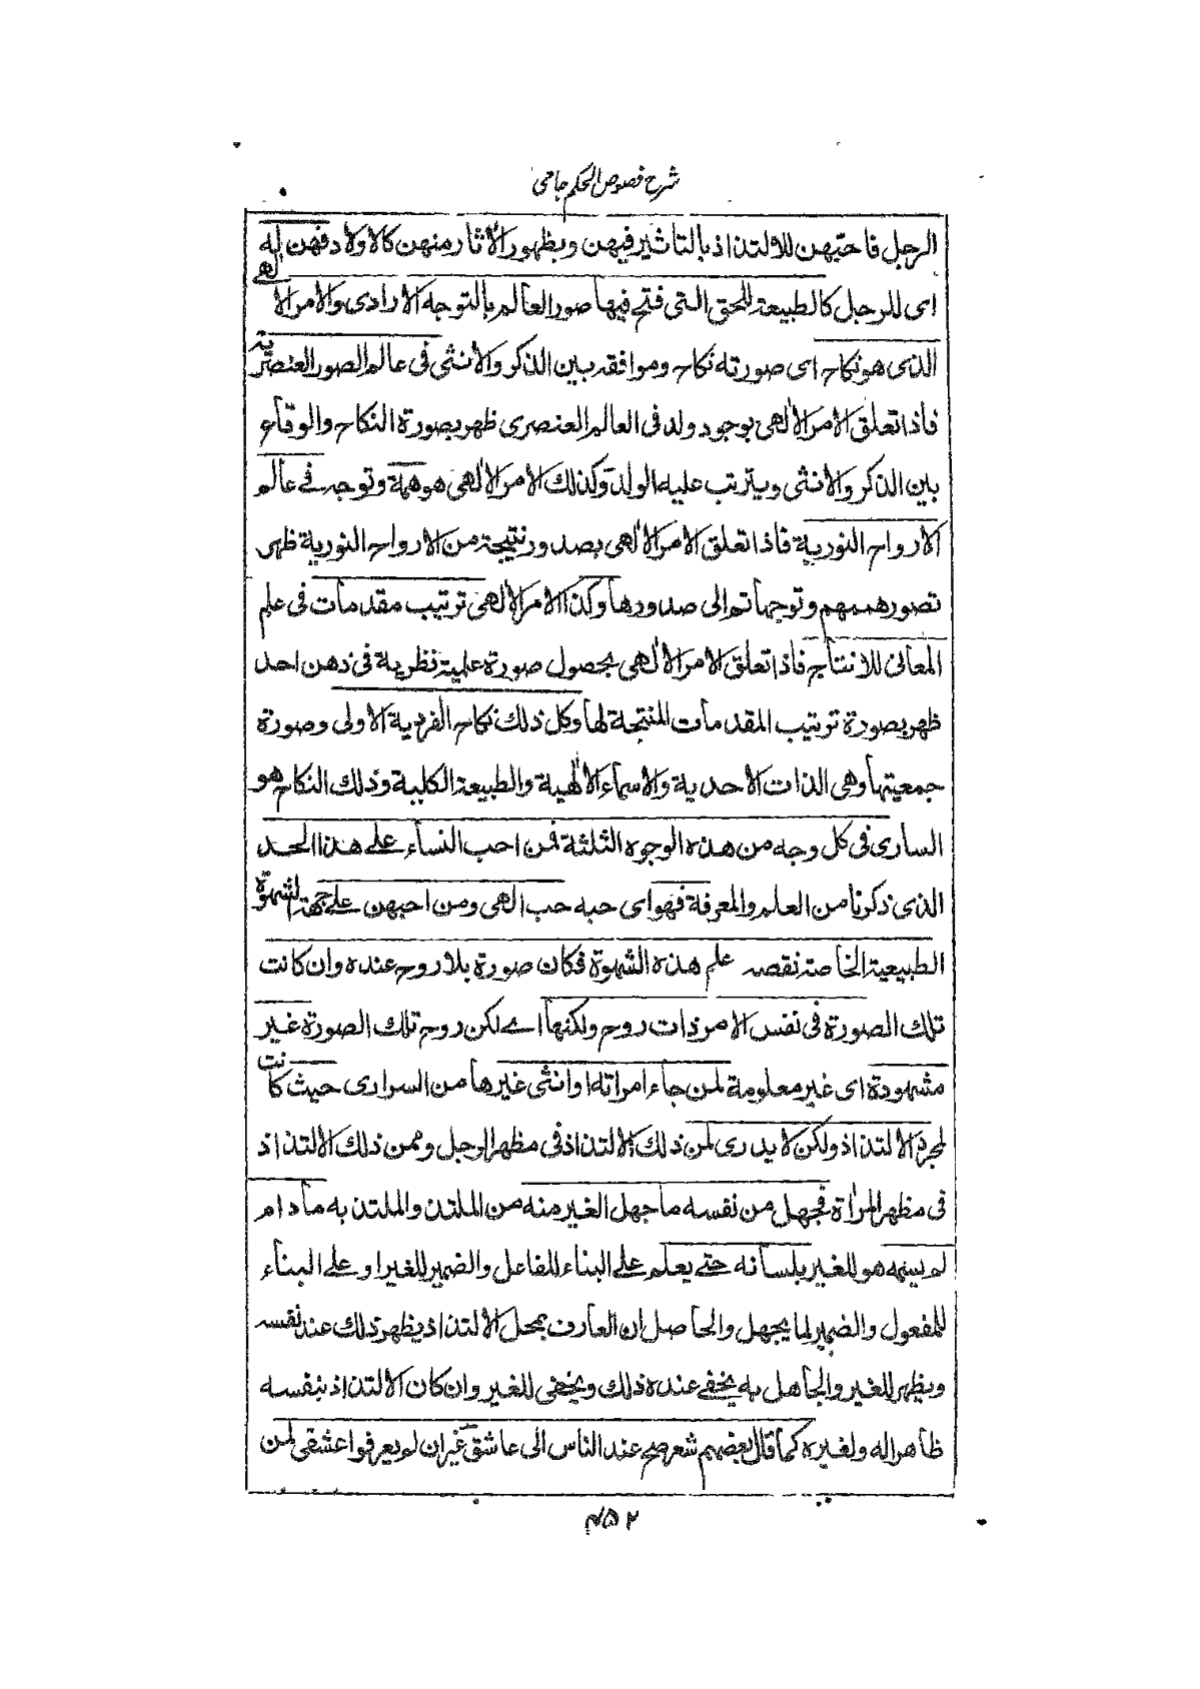 شرح فصوص الحکم جامی
الرجل فاحبهن للالتذاذ بالتاثير فيهن وبظهور الأثار منهن كالاولاد فهن له
اى للرجل كالطبيعة للحق التى فتح فيها صور العالم بالتوجه الارادى والامر الالهے
الذى هو نكاح اى صورته نكاح وموافقه بين الذكر والأنثى فى عالم الصور العنصرية
فاذا تعلق الأمر الألهى بوجود ولد فى العالم العنصرى ظهر بصورة النكاح والوقاع
بين الذكر والأنثى ويترتب عليه الولد وكذلك الامر الألهى هو همة وتوجه فے عالم
الارواح النورية فاذا تعلق الامر الألهى بصدور نتيجة من الارواح النورية ظهر
تصور هممهم وتوجهاتهم الى صدورها وكذا الامر الألهى ترتيب مقدمات فى علم
المعانى للانتاج فاذا تعلق الامر الألهى بحصول صورة علمية نظرية فى ذهن احد
ظهر بصورة ترتيب المقدمات المنتجة لها وكل ذلك نكاح الفردية الاولى وصورة
جمعيتها وهى الذات الاحدية والاسماء الألهية والطبيعة الكلية وذلك النكاح هو
السارى فى كل وجه من هذه الوجوه الثلثة فمن احب النساء علے هذا الحد
الذى ذكرنا من العلم والمعرفة فهو اى حبه حب الهى ومن احبهن علے جهة الشهوة
الطبيعية الخاصة نقصه علم هذه الشهوة فكان صورة بلا روح عنده وان كانت
تلك الصورة فى نفس الامر ذات روح ولكنها اے لكن روح تلك الصورة غير
مشهودة اى غير معلومة لمن جاء امراته او انثى غيرها من السرارى حيث كانت
لمجرد الالتذاذ ولكن لا يدرى لمن ذلك الالتذاذ فى مظهر الرجل وممن ذلك الالتذاذ
فى مظهر المرأة فجهل من نفسه ما جهل الغير منه من الملتذ والملتذ به مادام
لم يسمه هو للغير بلسانه حتے يعلم على البناء للفاعل والضمير للغير او على البناء
للمفعول والضمير لما يجهل والحاصل ان العارف بمحل الالتذاذ يظهر ذلك عند نفسه
ويظهر للغير والجاهل به يخفے عنده ذلك ويخفى للغير وان كان الالتذاذ بنفسه
ظاهرا له ولغيره كما قال بعضهم شعر صح عند الناس انى عاشق غير ان لم يعرفوا عشقى لمن
۴۵۲